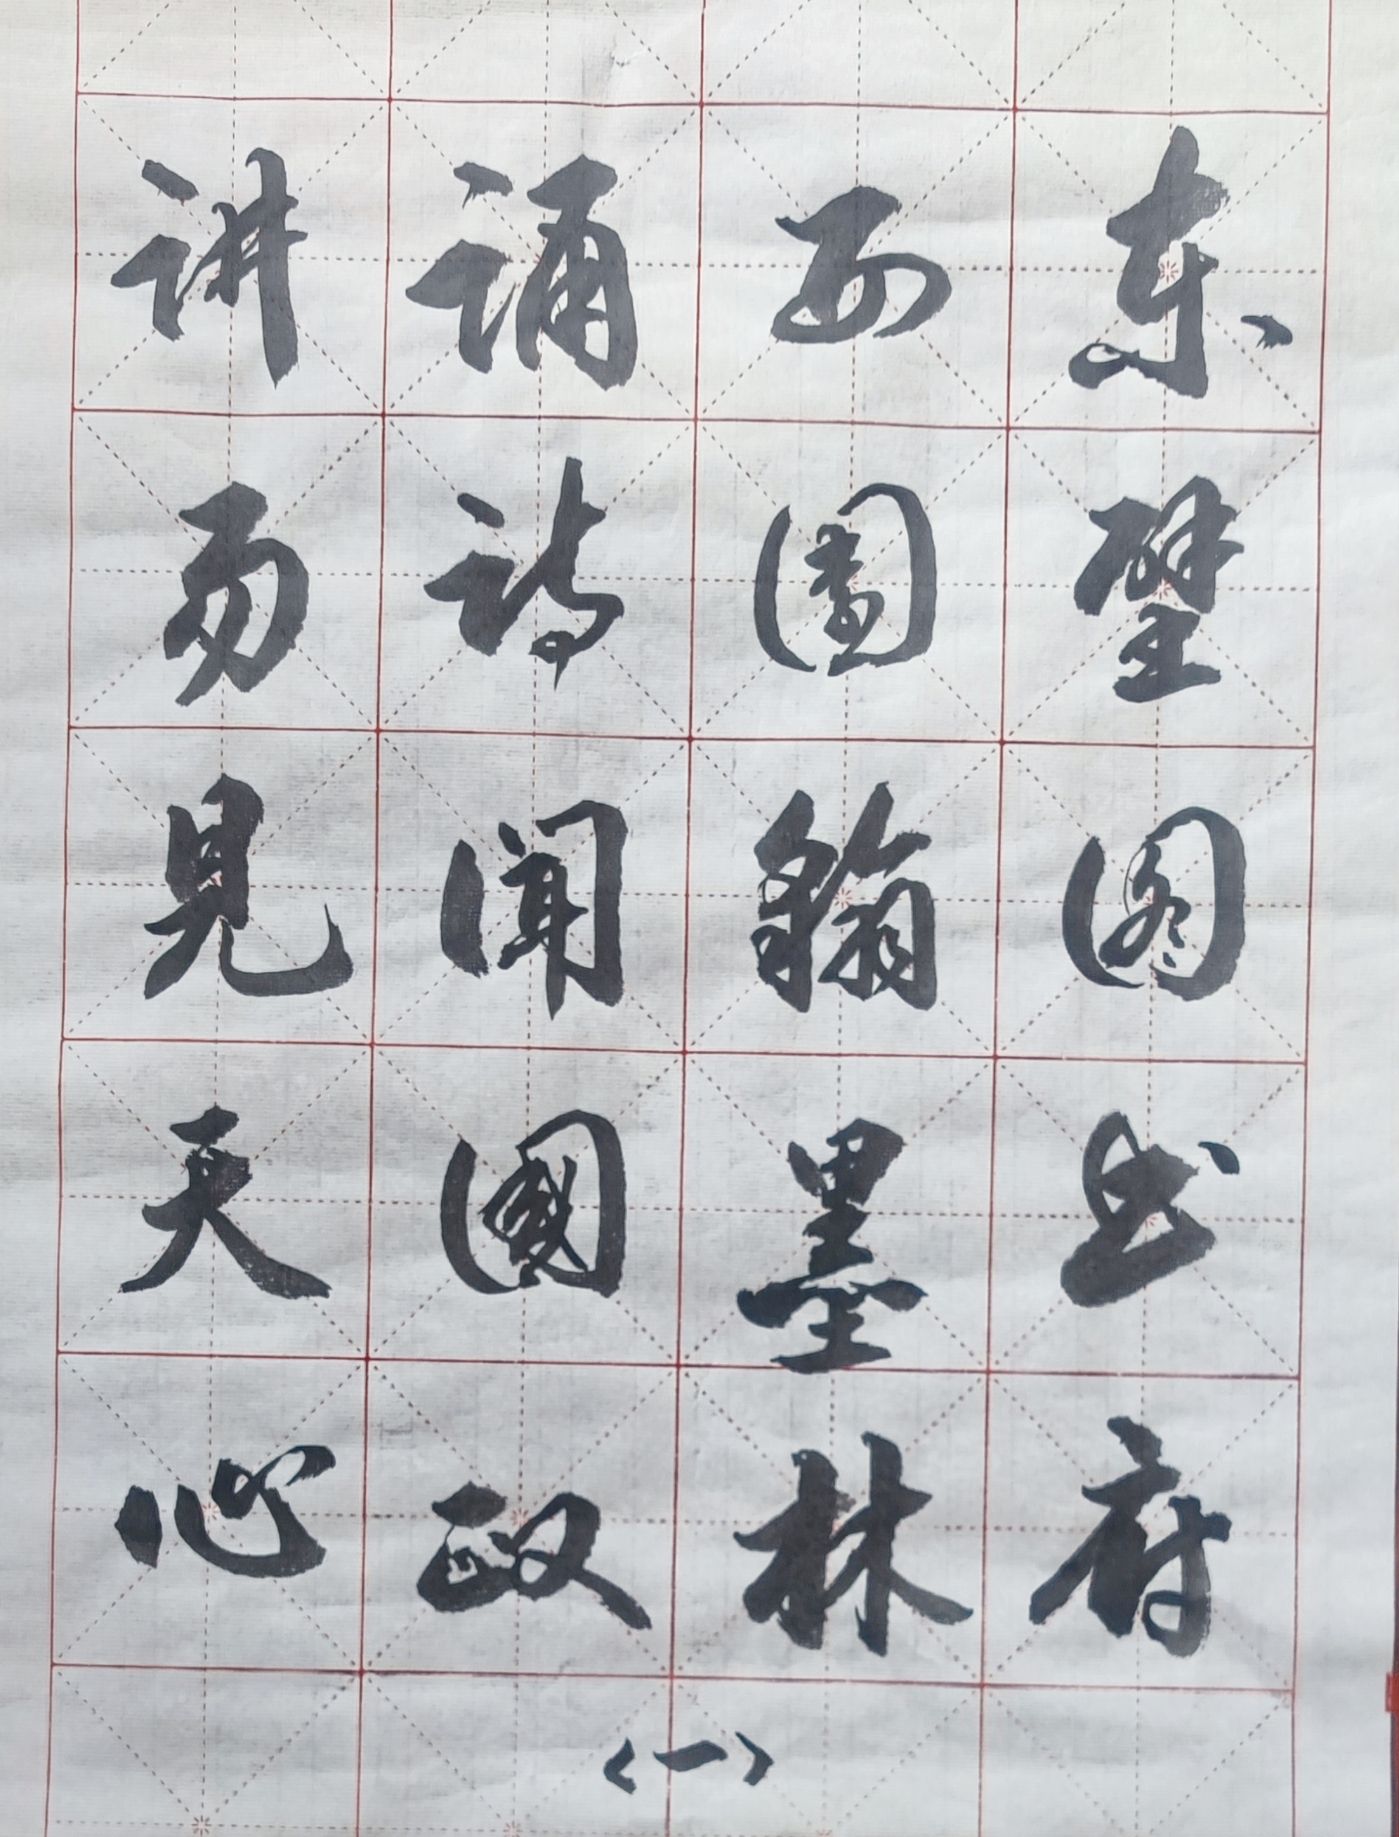 东壁图书府
西園翰墨林
诵诗闻國政
讲易見天心
〈一〉